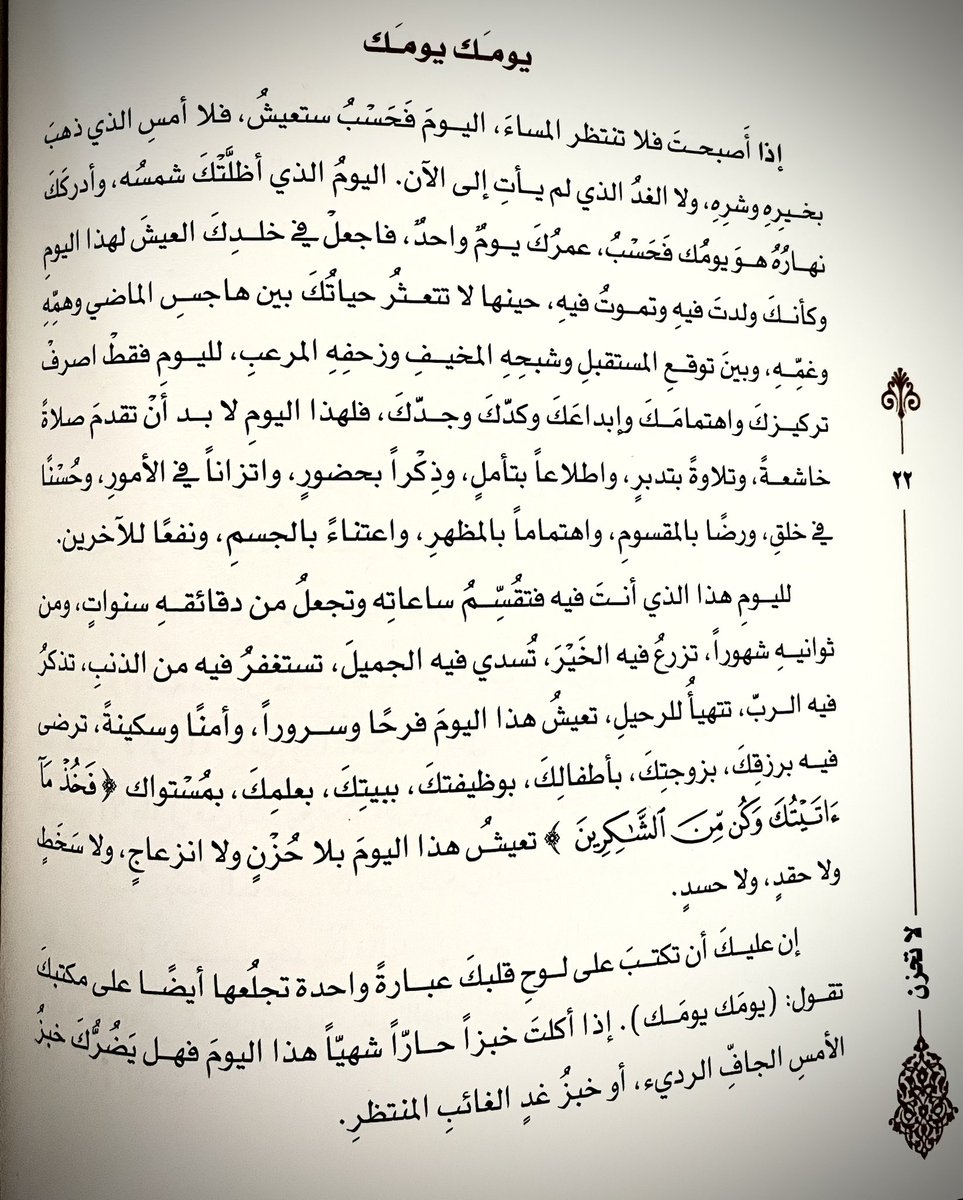 يومَك يومَك
إذا أَصبحتَ فلا تنتظر المساءَ، اليومَ فَحَسْبُ ستعيشُ، فلا أمسِ الذي ذهبَ
بخيرِهِ وشرِهِ، ولا الغدُ الذي لم يأتِ إلى الآن. اليومُ الذي أظلَّتْكَ شمسُه، وأدركَكَ
نهارُهُ هوَ يومُك فَحَسْبُ، عمرُكَ يومٌ واحدٌ، فاجعلْ في خلدِكَ العيشَ لهذا اليومِ
وكأنكَ ولدتَ فيهِ وتموتُ فيهِ، حينها لا تتعثرُ حياتُكَ بين هاجسِ الماضي وهمِّهِ
وغمِّهِ، وبينَ توقعِ المستقبلِ وشبحِهِ المخيفِ وزحفِهِ المرعبِ، لليومِ فقطْ اصرفْ
تركيزكَ واهتمامَكَ وإبداعَكَ وكدّكَ وجدّكَ، فلهذا اليومِ لا بد أنْ تقدمَ صلاةً
خاشعةً، وتلاوةً بتدبرٍ، واطلاعاً بتأملٍ، وذِكْراً بحضورٍ، واتزاناً في الأمورِ، وحُسْنًا
في خلقِ، ورضًا بالمقسومِ، واهتماماً بالمظهرِ، واعتناءً بالجسمِ، ونفعًا للآخرين.
لليومِ هذا الذي أنتَ فيه فتقُسِّمُ ساعاتِه وتجعلُ من دقائقهِ سنواتٍ، ومن
ثوانيهِ شهوراً، تزرعُ فيه الخَيْرَ، تُسدي فيه الجميلَ، تستغفرُ فيه من الذنبِ، تذكرُ
فيه الربّ، تتهيأُ للرحيلِ، تعيشُ هذا اليومَ فرحًا وسروراً، وأمنًا وسكينةً، ترضى
فيه برزقِكَ، بزوجتِكَ، بأطفالِكَ، بوظيفتكَ، ببيتِكَ، بعلمِكَ، بمُسْتواك ﴿فَخُذْ مَآ
ءَاتَيْتُكَ وَكُن مِّنَ ٱلشَّٰكِرِينَ﴾ تعيشُ هذا اليومَ بلا حُزْنٍ ولا انزعاجٍ، ولا سَخَطٍ
ولا حقدٍ، ولا حسدٍ.
إن عليكَ أن تكتبَ على لوحِ قلبكَ عبارةً واحدة تجلُعها أيضًا على مكتبكَ
تقول: (يومَك يومَك). إذا أكلتَ خبزاً حارّاً شهيّاً هذا اليومَ فهل يَضُرُّكَ خبزُ
الأمسِ الجافِّ الرديء، أو خبزُ غدٍ الغائبِ المنتظرِ.
٢٢
لا تحزن